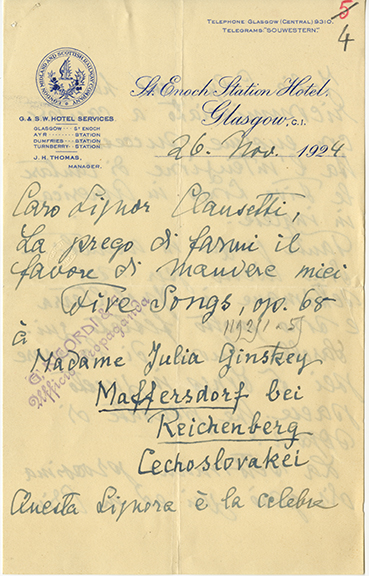 TELEPHONE GLASGOW (CENTRAL) 8310.
TELEGRAMS: "SOUWESTERN."
5
4
LONDON MIDLAND AND SCOTTISH RAILWAY COMPANY
St. Enoch Station Hotel,
Glasgow, C.1.
G. & S.W. HOTEL SERVICES
GLASGOW ··· ST ENOCH
AYR ··· STATION
DUMFRIES ··· STATION
TURNBERRY ··· STATION
J. H. THOMAS,
MANAGER.
26. Nov. 1924
Caro Signor Clausetti,
La prego di farmi il
favore di mandare miei
Five Songs, op. 68
G. RICORDI &
Ufficio Propaganda
à
Madame Julia Ginskey
Maffersdorf bei
Reichenberg
Cechoslovakei
Questa Signora è la celebre